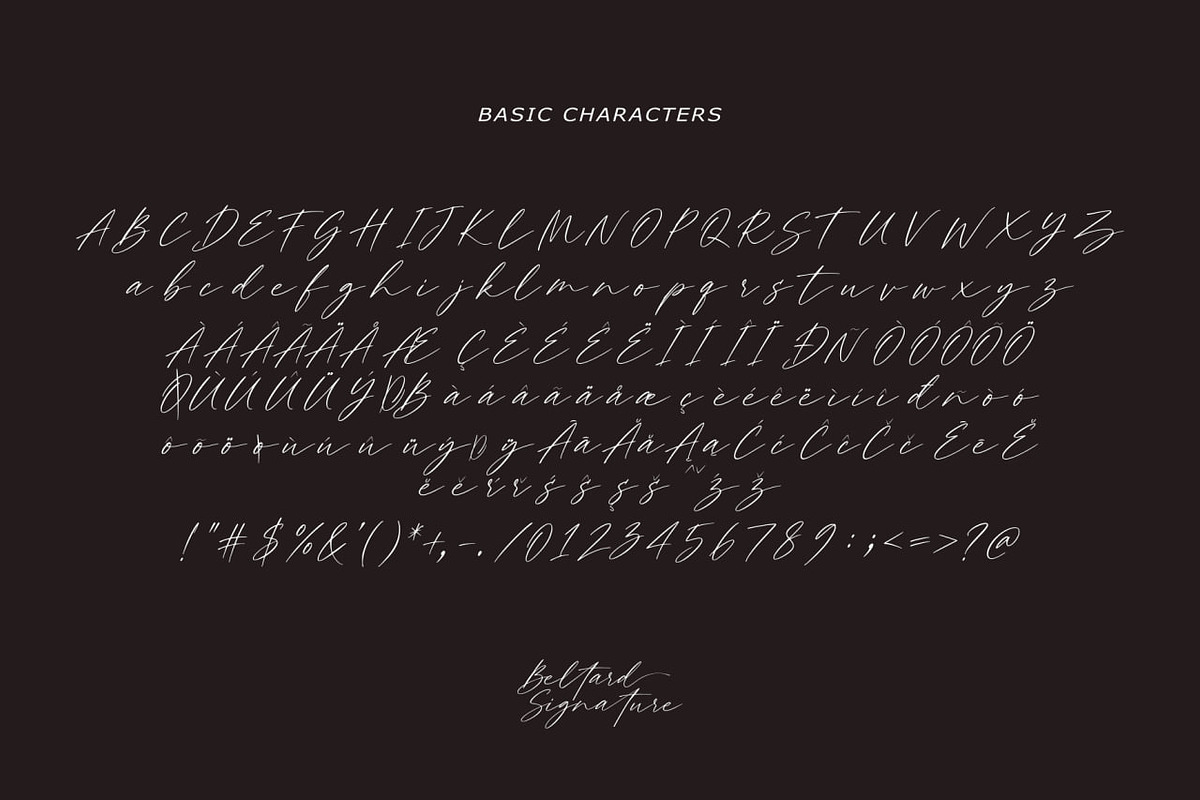 BASIC CHARACTERS
A B C D E F G H I J K L M N O P Q R S T U V W X Y Z
a b c d e f g h i j k l m n o p q r s t u v w x y z
À Á Â Ã Ä Å Æ Ç È É Ê Ë Ì Í Î Ï Ð Ñ Ò Ó Ô Õ Ö
Ø Ù Ú Û Ü Ý Þ ß à á â ã ä å æ ç è é ê ë ì í î đ ñ ò ó
ô õ ö ø ù ú û ü ý þ ÿ Ā ā Ă ă Ą ą Ć ć Ĉ ĉ Č č Ē ē Ĕ
ĕ ě ŕ ř ś ŝ ş š ˆ ˇ ź ž
! " # $ % & ' ( ) * + , - . / 0 1 2 3 4 5 6 7 8 9 : ; < = > ? @
Beltard
Signature